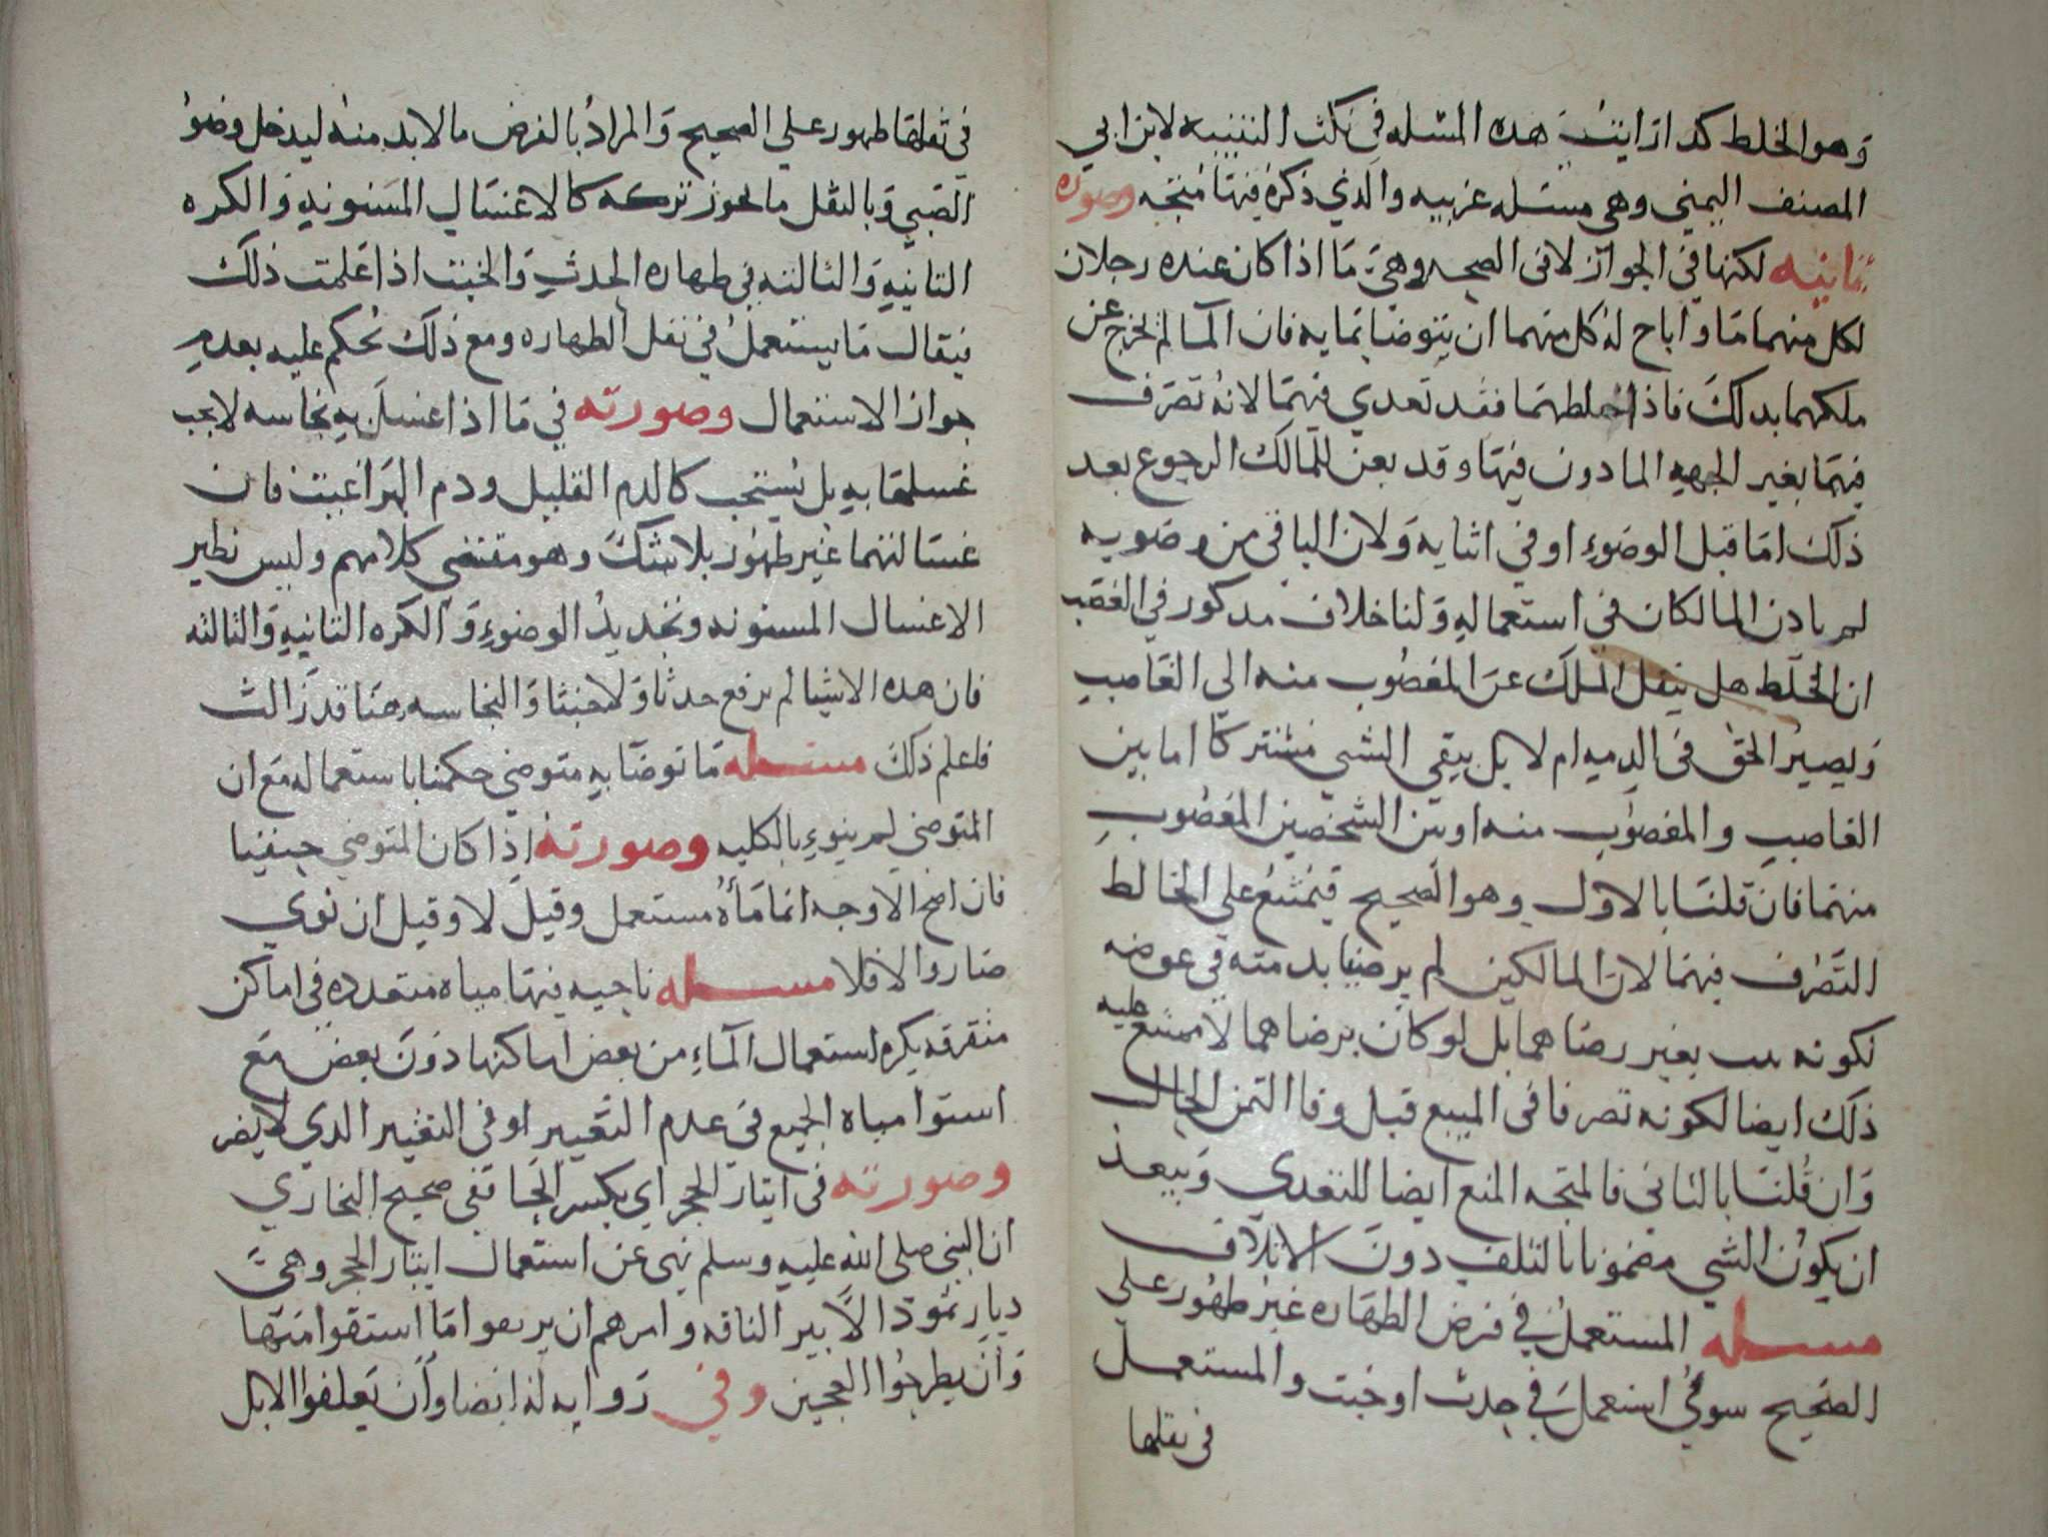 وهو الخلط كدا رايت هده المسله في نكت التنبيه لابن ابي
المصنف اليمني وهي مسله غريبه والذي ذكره فيها متجه وصوره
ثانيه لكنها في الجواز لا في الصحه وهي ما اذا كان عنده رجلان
لكل منهما ما واباح له كل منهما ان يتوضا بمايه فان الما لم يخرج عن
ملكهما بدلك فاذا خلطهما فقد تعدي فيهما لانه تصرف
فيهما بغير الجهه المادون فيها وقد يعن للمالك الرجوع بعد
ذلك اما قبل الوضوء او في اثنايه ولان الباقي من وضويه
لم يادن المالكان في استعماله ولنا خلاف مدكور في الغصب
ان الخلط هل ينقل الملك عن المغصوب منه الي الغاصب
ويصير الحق في الدمه ام لا بل يبقي الشي مشتركا اما بين
الغاصب والمغصوب منه او بين الشخصين المغصوب
منهما فان قلنا بالاول وهو الصحيح فيمتنع علي الخالط
التصرف فيهما لان المالكين لم يرضيا بدمته في عوضه
لكونه بغير رضاهما بل لو كان برضاهما لامتنع عليه
ذلك ايضا لكونه تصرفا في المبيع قبل وفا الثمن الحال
وان قلنا بالثاني فالمتجه المنع ايضا للتعدي ويبعد
ان يكون الشي مضمونا بالتلف دون الاتلاف
مسله المستعمل في فرض الطهاره غير طهور علي
الصحيح سوي استعمل في حدث او خبث والمستعمل
في نفلها
في نفلها طهور علي الصحيح والمراد بالفرض ما لا بد منه ليدخل وضو
الصبي وبالنفل ما يجوز تركه كالاغسال المسنونه والكره
الثانيه والثالثه في طهاره الحدث والخبث اذا علمت ذلك
فيقال ما يستعمل في نفل الطهاره ومع ذلك يحكم عليه بعدم
جواز الاستعمال وصورته في ما اذا غسل به نجاسه لا يجب
غسلها به بل يستحب كالدم القليل ودم البراغيث فان
غسالتهما غير طهور بلا شك وهو مقتضي كلامهم وليس نظير
الاغسال المسنونه وتجديد الوضوء والكره الثانيه والثالثه
فان هده الاشيا لم يرفع حدثا ولا خبثا والنجاسه هنا قد زالت
فاعلم ذلك مسله ما توضا به متوضي حكمنا باستعماله مع ان
المتوضي لم ينوء بالكليه وصورته اذا كان المتوضي حنفيا
فان اصح الاوجه انما ماه مستعمل وقيل لا وقيل ان نوي
صار والا فلا مسله ناحيه فيها مياه متعدده في اماكن
متفرقه يكره استعمال الماء من بعض اماكنها دون بعض مع
استوا مياه الجميع في عدم التغيير او في التغيير الدي لا يضر
وصورته في ابيار الحجر اي بكسر الحا ففي صحيح البخاري
ان النبي صلي الله عليه وسلم نهي عن استعمال ابيار الحجر وهي
ديار ثمود الا بير الناقه وامرهم ان يريقوا ما استقوا منها
وان يطرحوا العجين وفي روايه له ايضا وان يعلفوا الابل